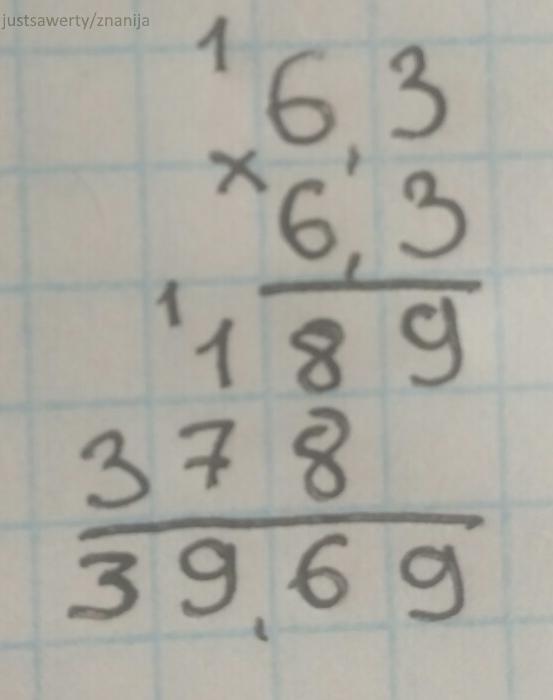 justsawerty/znanija
1
6,3
×
6,3
1
189
378
39,69